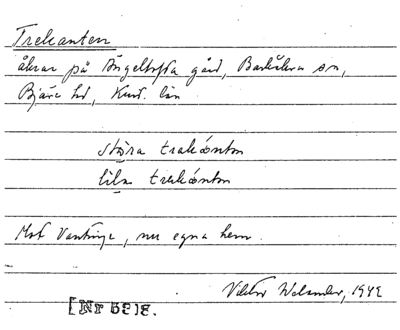 Trekanten
åkrar på Ängeltofta gård, Barkåkra sn,
Bjäre hd, Krist. län
stora trekanten
lila trekanten
Mot Vantinge, nu egna hem.
Viktor Welander, 1942
[Nr 5818.